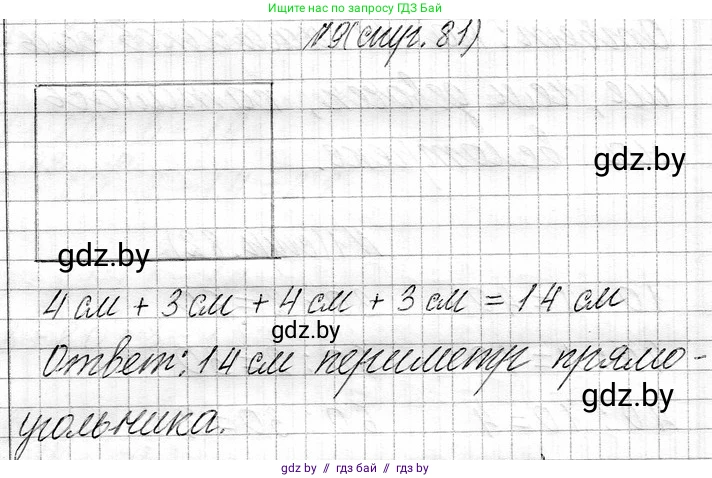 Ищите нас в интернете
по запросу ГДЗ БАЙ
№9(стр. 81)
gdz.by
gdz.by
4 см + 3 см + 4 см + 3 см = 14 см
gdz.by
Ответ: 14 см периметр прямо-
gdz.by
угольника.
gdz.by // гдз бай // гдз.by